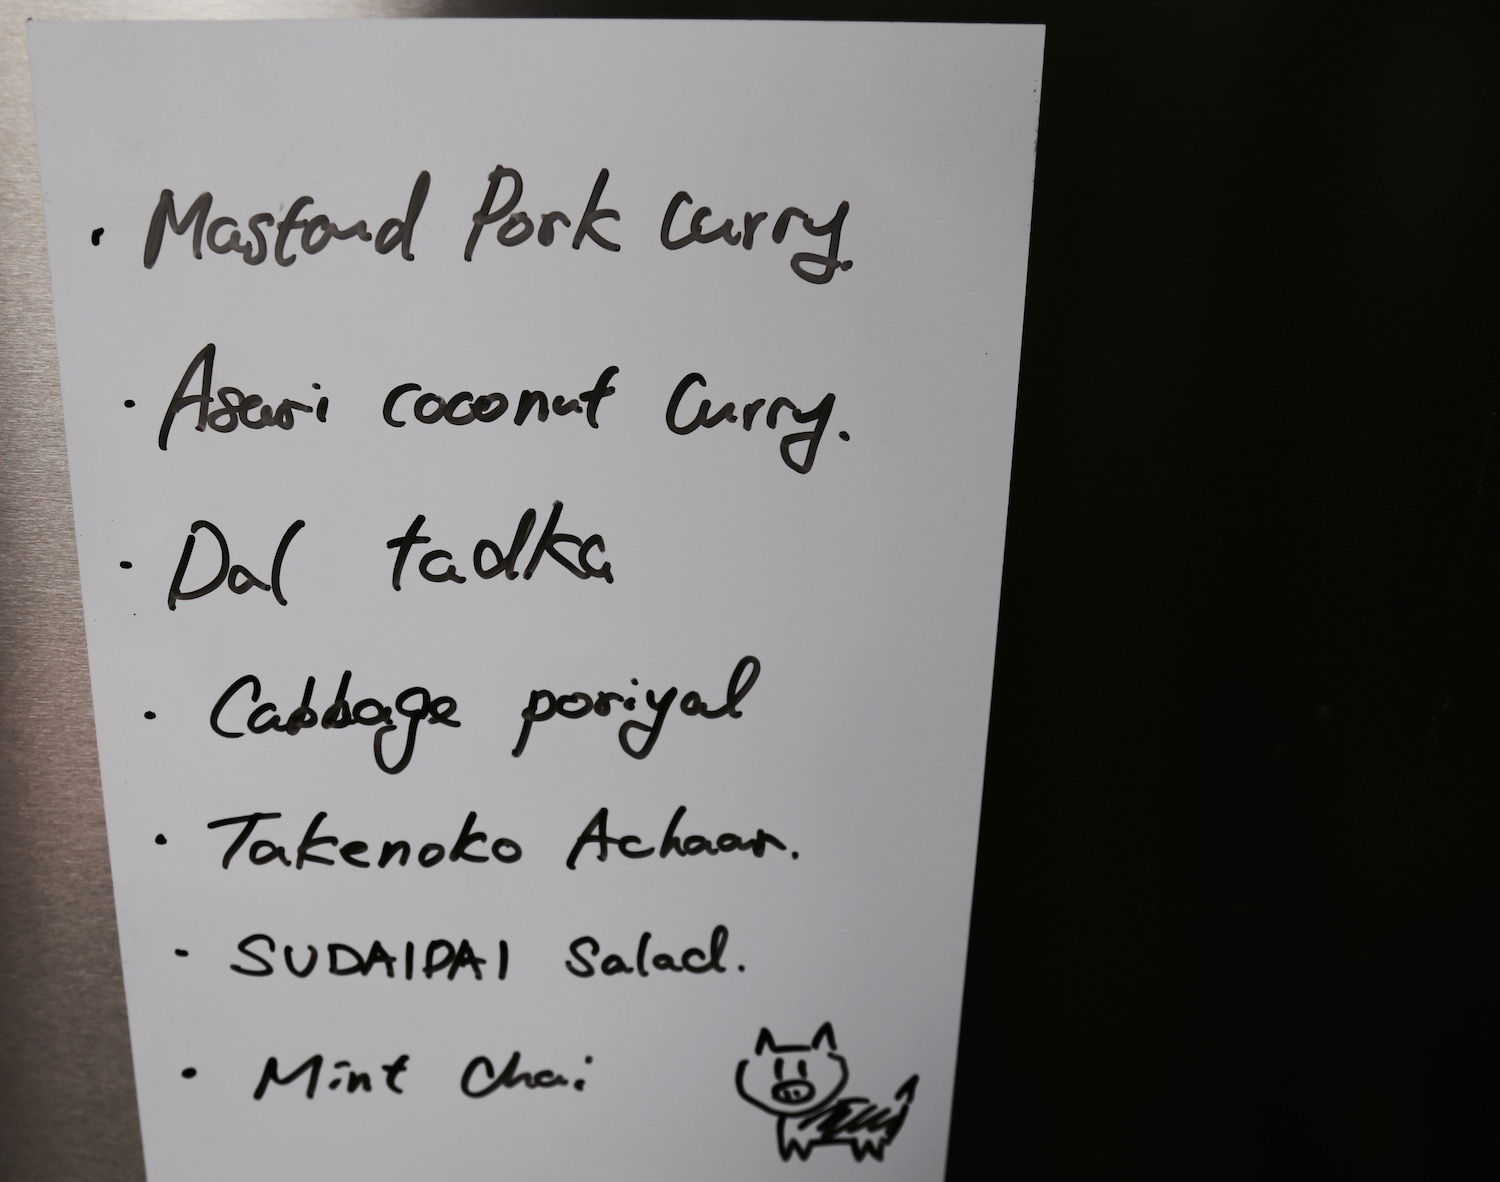 · Mastoud Pork Curry.
· Asari coconut Curry.
· Dal tadka
· Cabbage poriyal
· Takenoko Achaar.
· SUDAIDAI Salad.
· Mint Chai